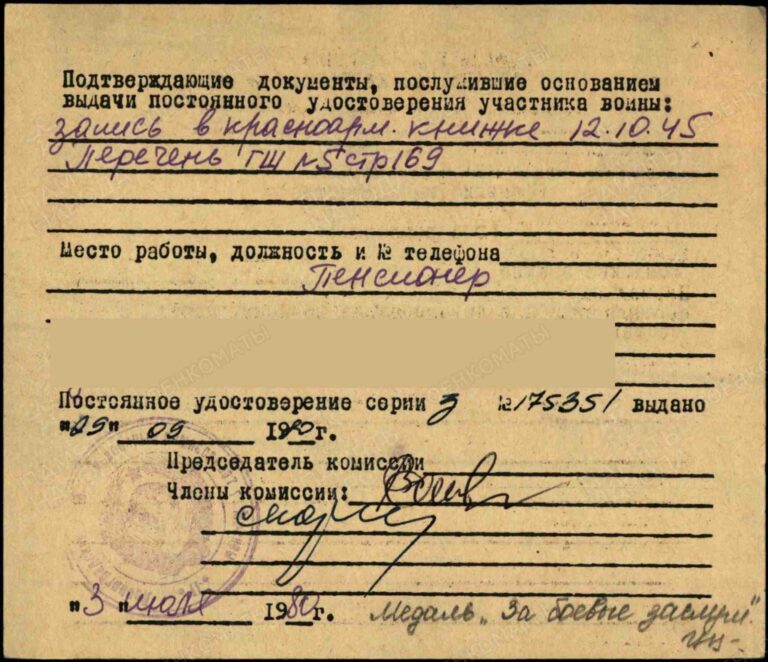 Подтверждающие документы, послужившие основанием
выдачи постоянного удостоверения участника войны:
запись в красноарм. книжке 12.10.45
Перечень ГШ №5 стр 169
Место работы, должность и № телефона
Пенсионер
Постоянное удостоверение серии З № 175351 выдано
"29" 09 1980г.
Председатель комиссии
Члены комиссии:
"3" июля 1980г. Медаль "За боевые заслуги"